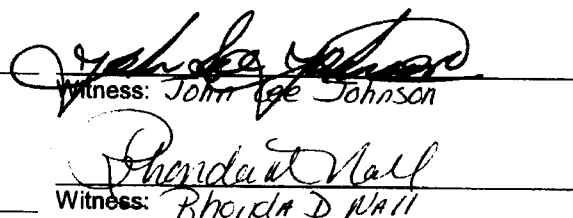 John Lee Johnson
Witness: John Lee Johnson
Rhonda D Nall
Witness: Rhonda D NAll